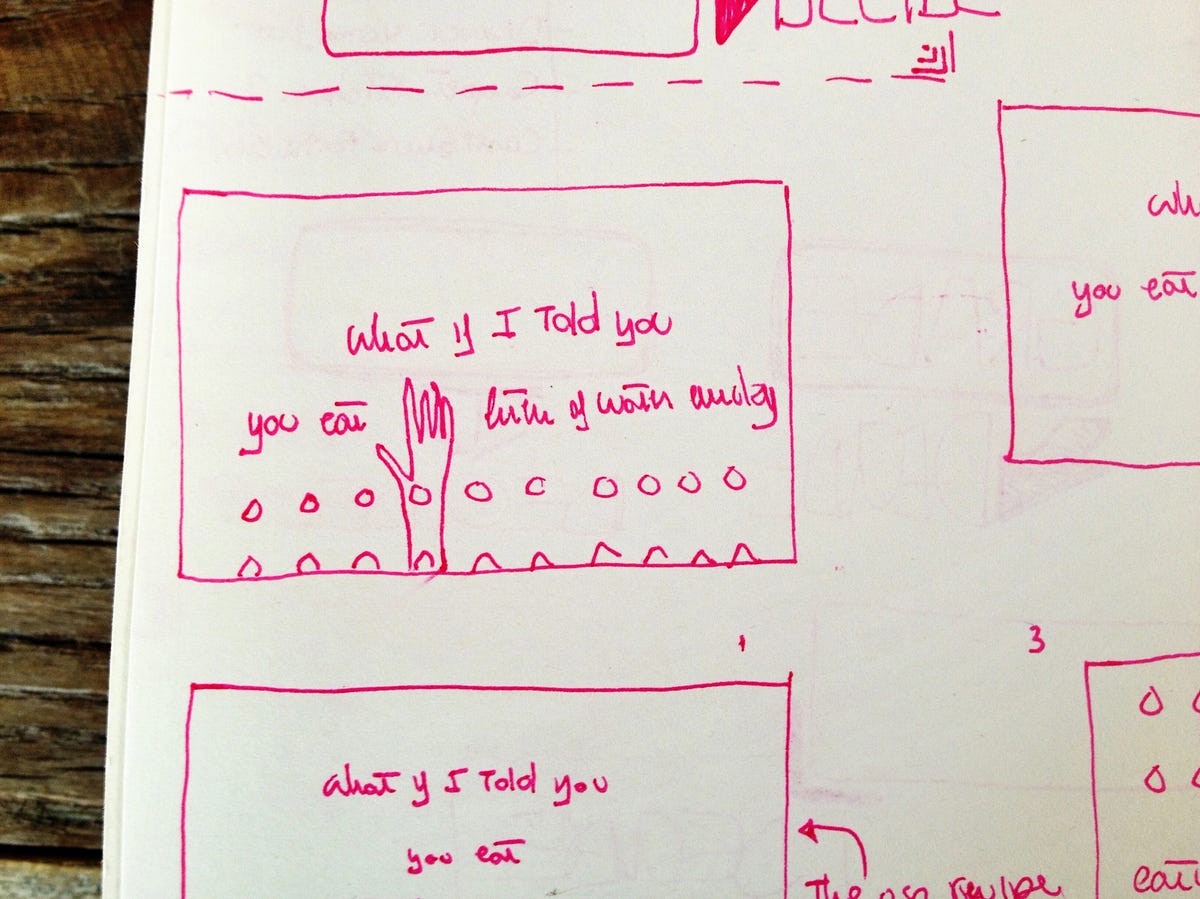 what if I Told you
wh
you eat
you eat liters of water everyday
1
3
what if I Told you
you eat
The
eat